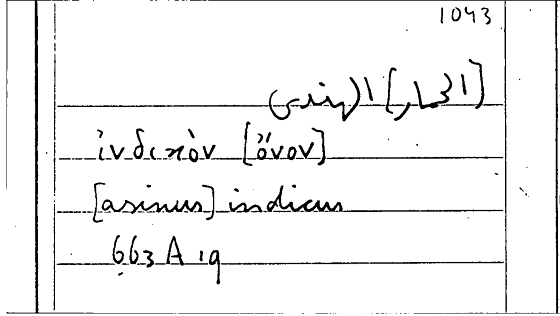 1043
[الحمار] الهندي
ἰνδικὸν [ὄνον]
[asinus] indicus
663 A 19